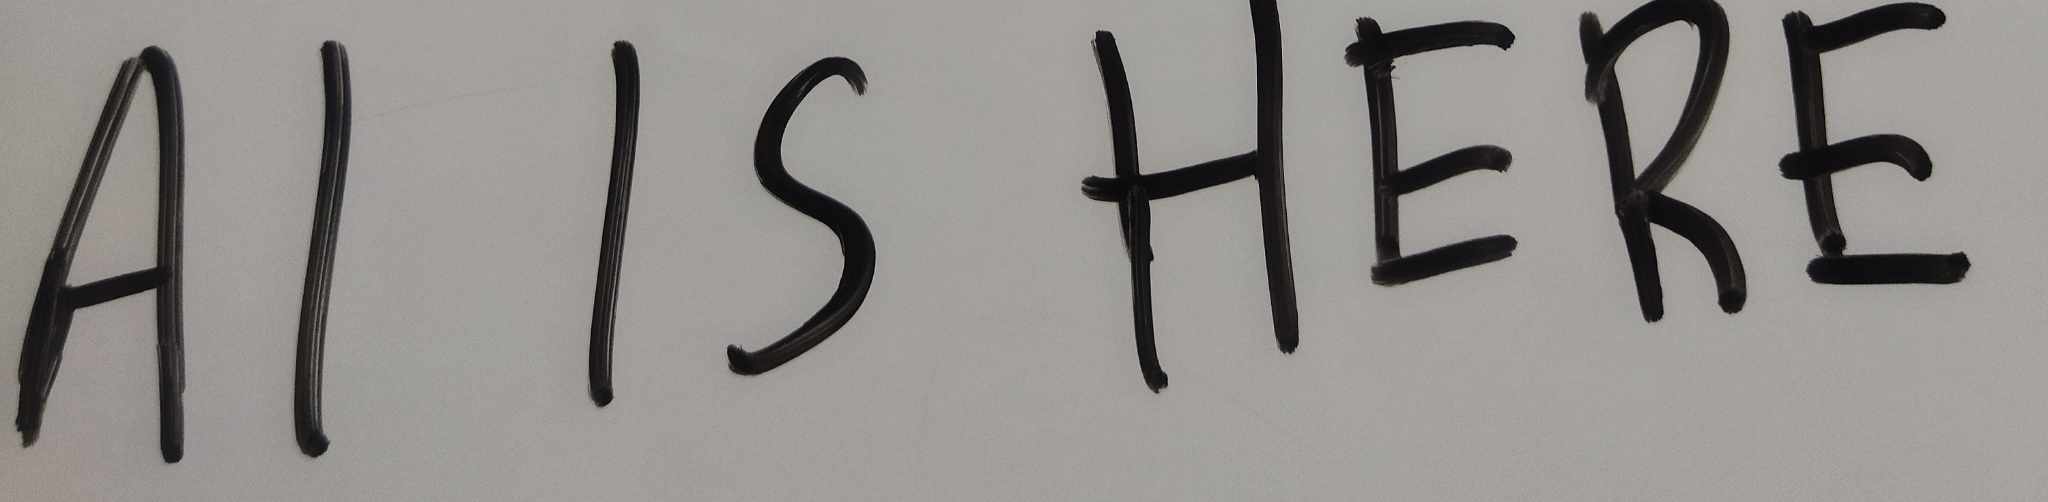 AI IS HERE